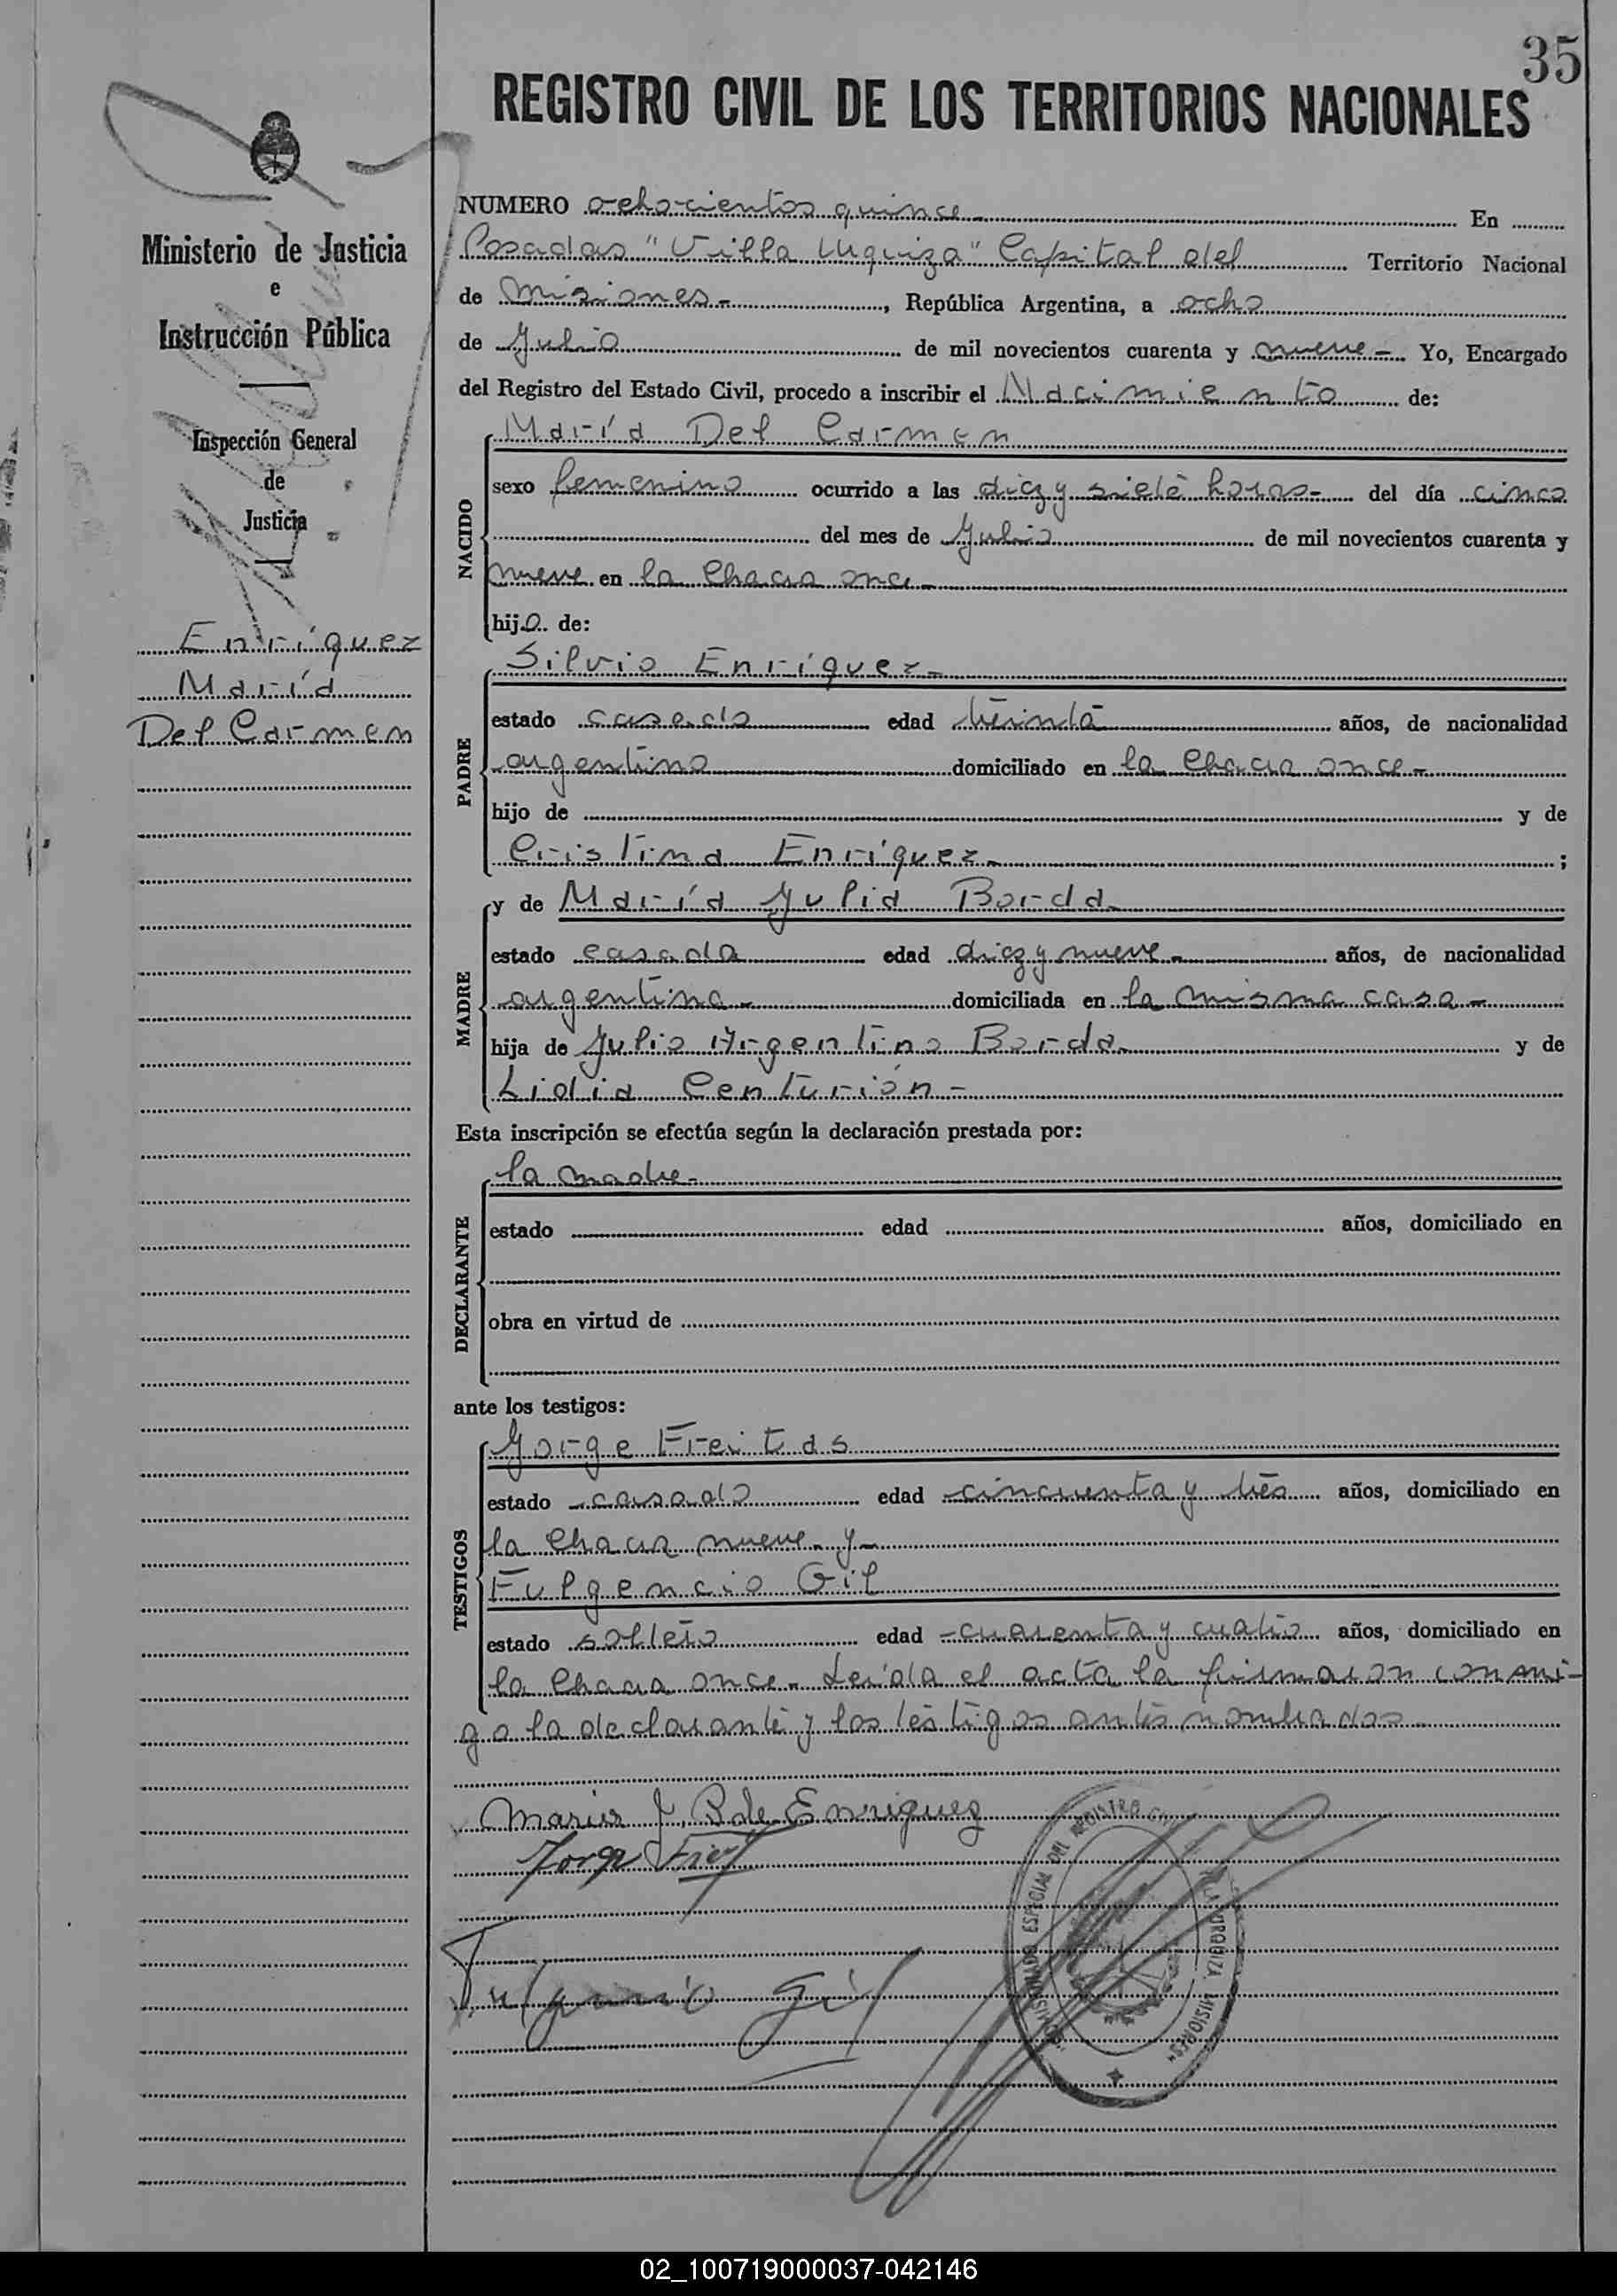 35
REGISTRO CIVIL DE LOS TERRITORIOS NACIONALES
Ministerio de Justicia
e
Instrucción Pública
Inspección General
de
Justicia
Enríquez
María
Del Carmen
NUMERO ochocientos quince.- En
Posadas "Villa Urquiza" Capital del Territorio Nacional
de Misiones.-, República Argentina, a ocho
de Julio de mil novecientos cuarenta y nueve.- Yo, Encargado
del Registro del Estado Civil, procedo a inscribir el Nacimiento de:
NACIDO
María Del Carmen
sexo femenino ocurrido a las diez y siete horas.- del día cinco
del mes de Julio de mil novecientos cuarenta y
nueve en la chacra once.-
hija de:
PADRE
Silvio Enríquez.-
estado casado edad treinta años, de nacionalidad
argentino domiciliado en la chacra once.-
hijo de y de
Cristina Enríquez.- ;
MADRE
y de María Julia Borda.-
estado casada edad diez y nueve.- años, de nacionalidad
argentina.- domiciliada en la misma casa.-
hija de Julio Argentino Borda.- y de
Lidia Centurión.-
Esta inscripción se efectúa según la declaración prestada por:
DECLARANTE
la madre.-
estado edad años, domiciliado en
obra en virtud de
ante los testigos:
TESTIGOS
Jorge Freitas
estado casado edad cincuenta y tres años, domiciliado en
la chacra nueve.- y.-
Fulgencio Gil
estado soltero edad cuarenta y cuatro años, domiciliado en
la chacra once.- Leída el acta la firmaron conmi-
go la declarante y los testigos antes nombrados
Maria J. B de Enriquez
Jorge
Fulgencio Gil
COMISIONADO ESPECIAL DEL REGISTRO CIVIL
URQUIZA MISIONES
02_100719000037-042146